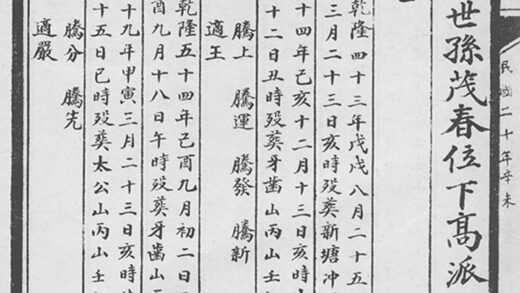 民國二十年辛未
世孫茂春位下高派
乾隆四十三年戊戌八月二十五
三月二十三日亥時歿葬新塘冲
十四年己亥十二月十三日亥時
十二日丑時歿葬牙齒山丙山壬
騰上 騰運 騰發 騰新
適王
乾隆五十四年己酉九月初二日
酉九月十八日午時歿葬牙齒山
十九年甲寅三月二十三日亥時
十五日巳時歿葬太公山丙山壬
騰分 騰先
適嚴